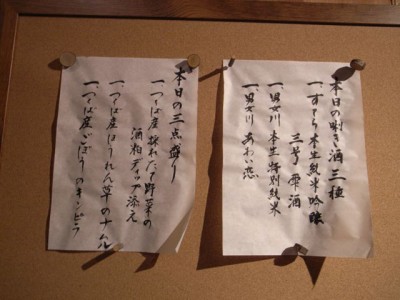 本日の利き酒三種
一、すてら本生純米吟醸
三芳雫酒
一、男女川本生特別純米
一、男女川あわい恋
本日の三点盛り
一、つくば産採れたて野菜の
酒粕ディップ添え
一、つくば産ほうれん草のナムル
一、つくば産ごぼうのキンピラ